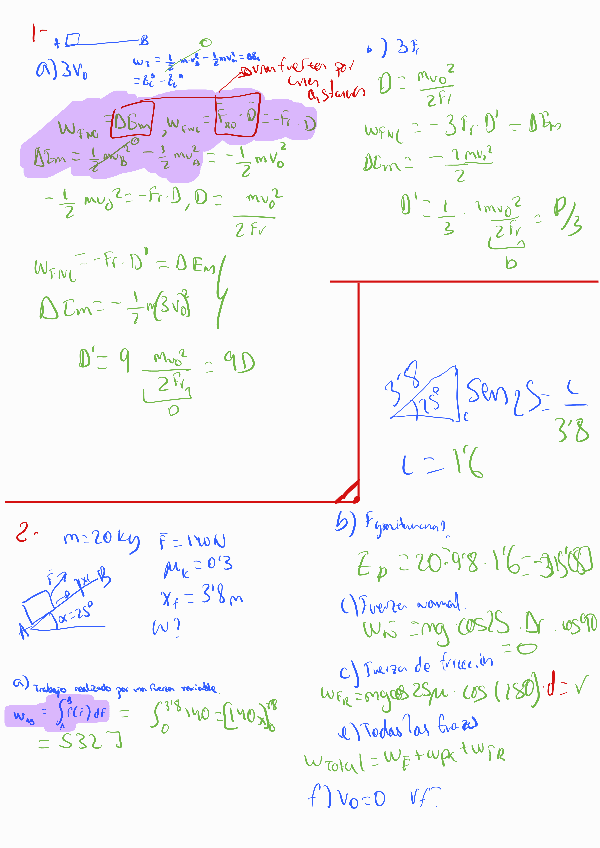 1-
A B
a) 3V₀
W_T = 1/2 m v_B² - 1/2 m v_A² = ΔE_c
una fuerza por
distancia
W_FNC = ΔEm, W_FNC = F_ro · D = -Fr · D
ΔEm = 1/2 m v_B² - 1/2 m v_A² = -1/2 m v₀²
-1/2 m v₀² = -Fr · D, D = m v₀² / 2Fr
W_FNC = -Fr · D' = ΔEm
ΔEm = -1/2 m(3v₀)²
D' = 9 m v₀² / 2Fr = 9D
D
b) 3Fr
D = m v₀² / 2Fr
W_FNC = -3Fr · D' = ΔEm
D' = 1/3 · m v₀² / 2Fr = D/3
D
3'8
25°
c
sen 25 = c / 3'8
c = 1'6
2-
m = 20 kg
F = 140 N
μk = 0'3
x_f = 3'8 m
W?
F
A
B
α = 25°
a) Trabajo realizado por una fuerza variable
W_AB = ∫_A^B F(r) dr = ∫_0^3'8 140 = [140x]_0^3'8
= 532 J
b) F gravitatoria?
Ep = 20 · 9'8 · 1'6 = -315'(8)
c) Fuerza normal
W_N = mg cos25 · Δr · cos90
= 0
c) Fuerza de fricción
W_FR = mg cos25 μ · cos(180) · d = √
e) Todas las fuerzas
W_Total = W_F + W_pk + W_FR
f) V₀ = 0 Vf?